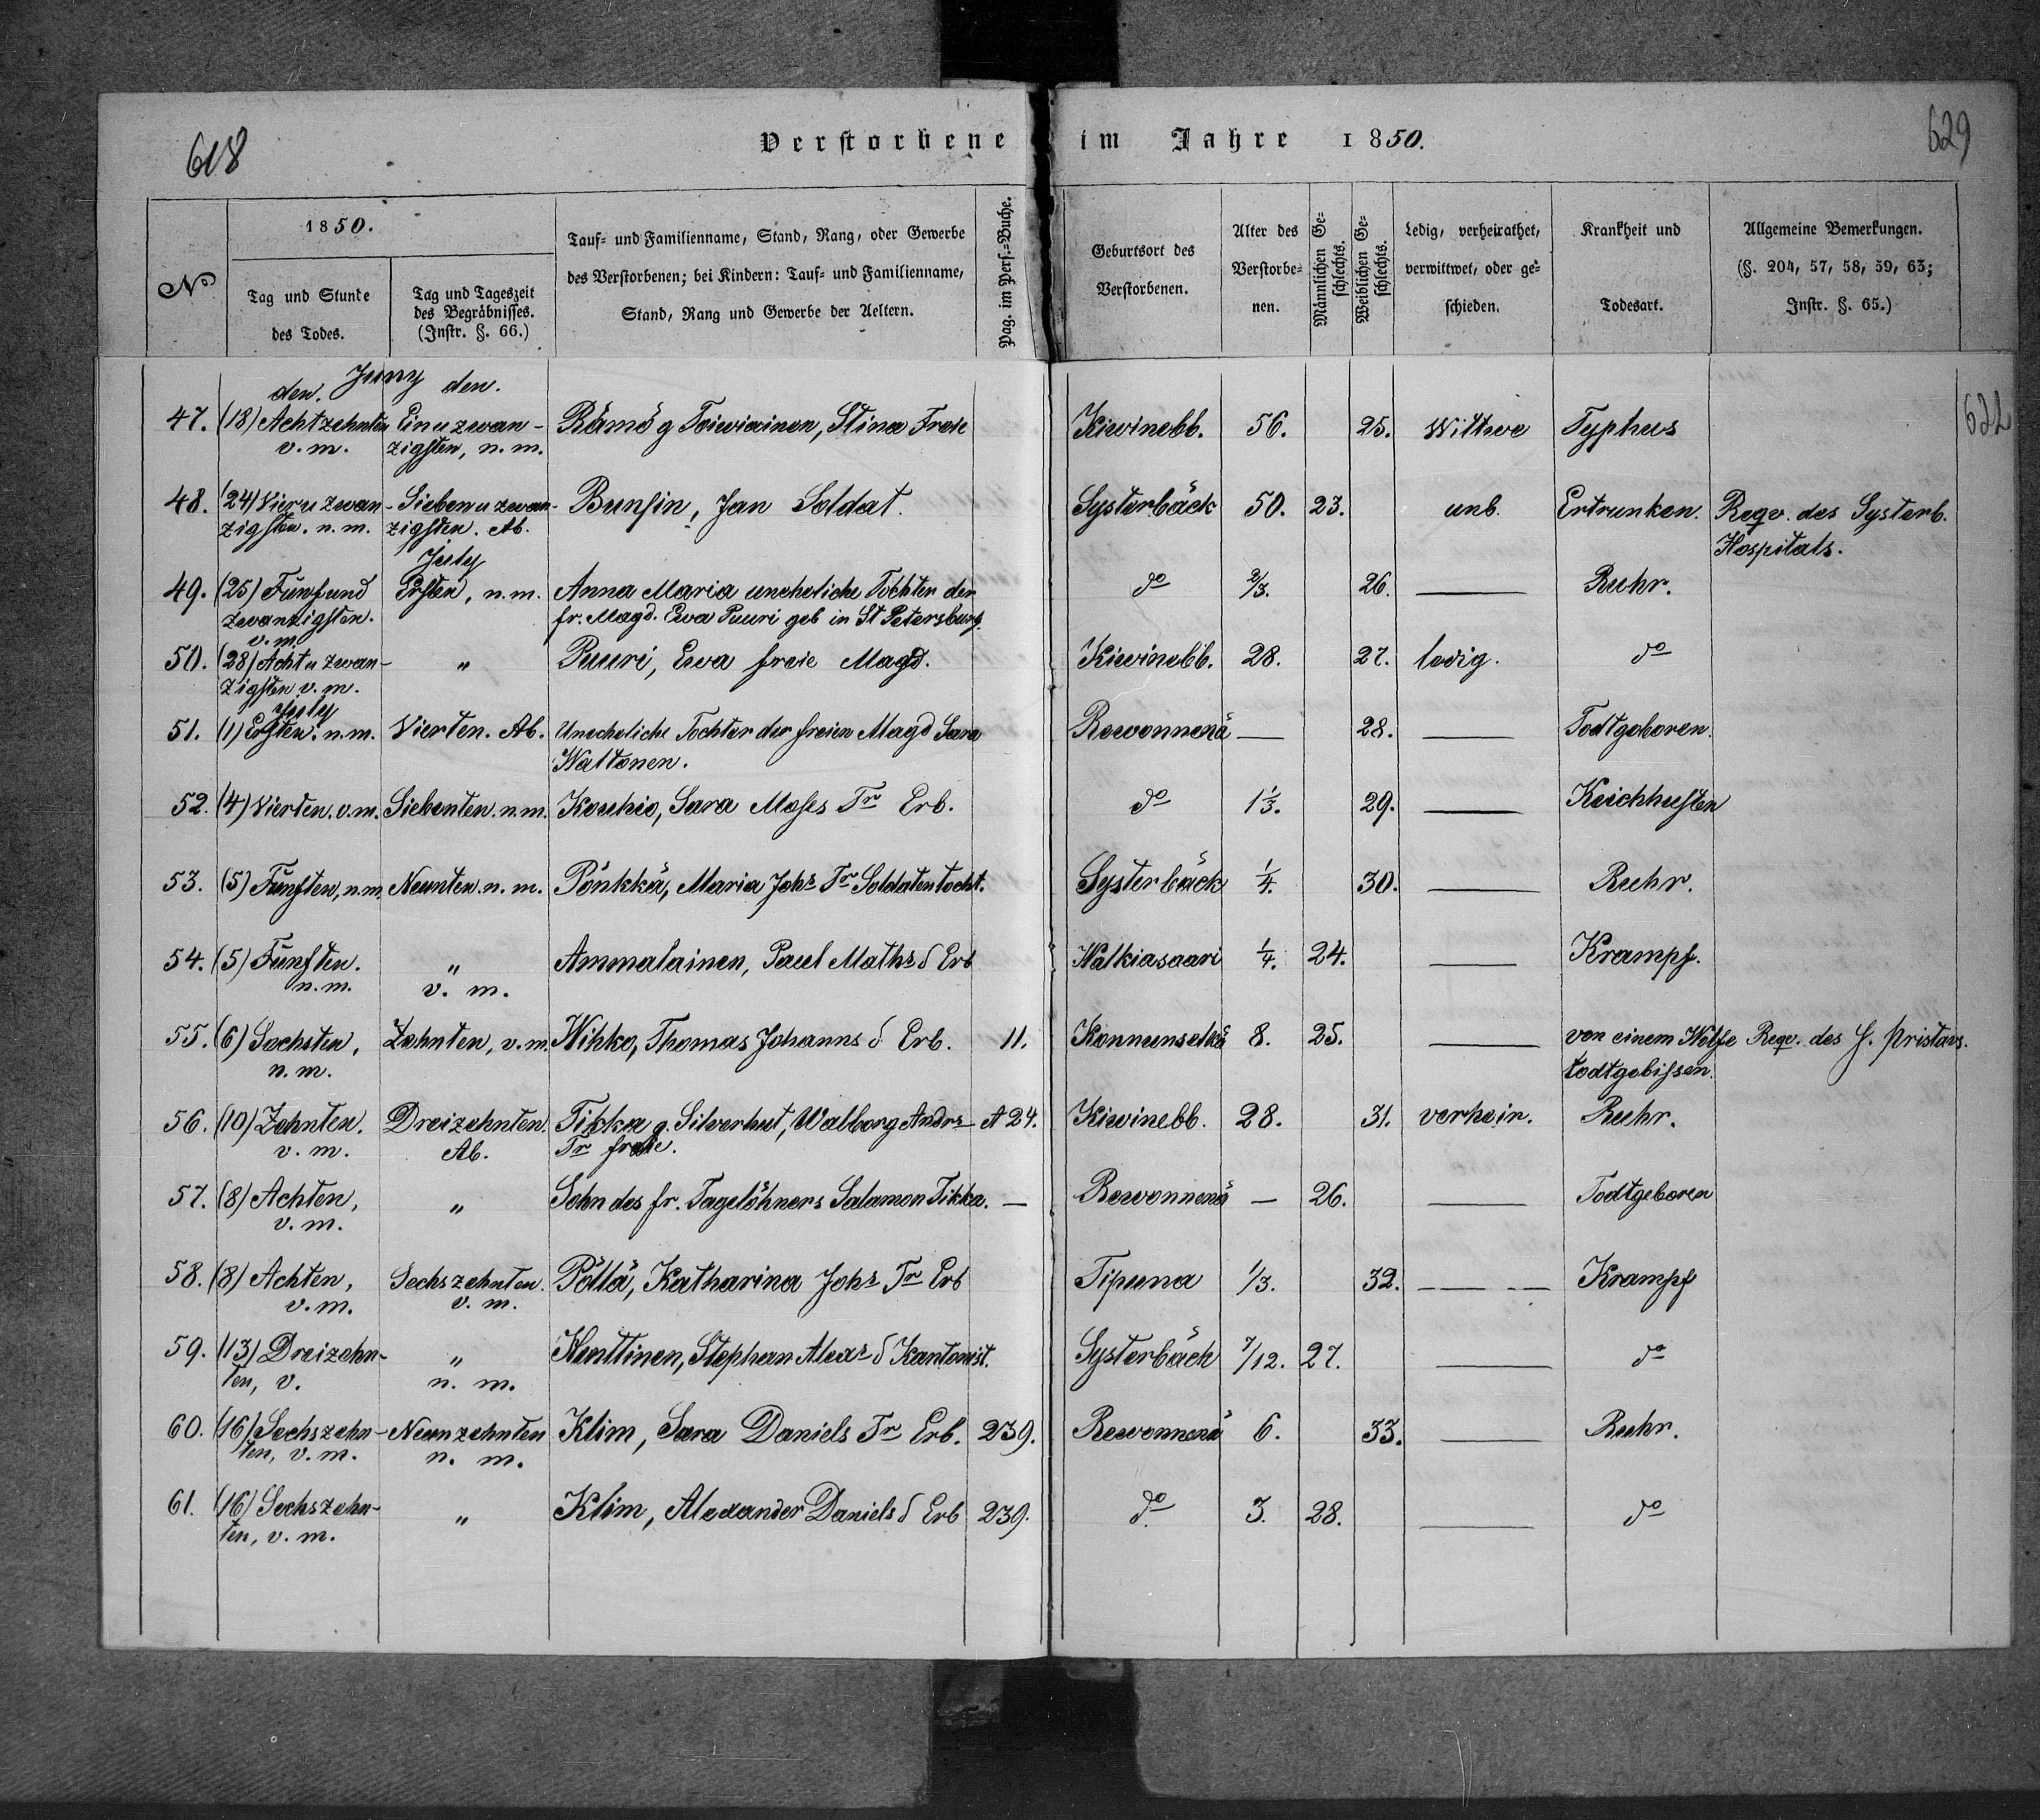 618
Verstorbene im Jahre 1850.
629
No
1850.
Tag und Stunde
des Todes.
Tag und Tageszeit
des Begräbnisses.
(Instr. §. 66.)
Tauf- und Familienname, Stand, Rang, oder Gewerbe
des Verstorbenen; bei Kindern: Tauf- und Familienname,
Stand, Rang und Gewerbe der Aeltern.
Pag. im Pers.-Buche.
Geburtsort des
Verstorbenen.
Alter des
Verstorbe-
nen.
Männlichen Ge-
schlechts.
Weiblichen Ge-
schlechts.
Ledig, verheirathet,
verwittwet, oder ge-
schieden.
Krankheit und
Todesart.
Allgemeine Bemerkungen.
(§. 204, 57, 58, 59, 63;
Instr. §. 65.)
den. Juny den.
47. (18) Achtzehnten Einuzwan- Rämö g Toiwiainen, Stina Freie Kiwinebb. 56. 25. Wittwe Typhus
v. m. zigsten, n. m.
48. (24) Vieruzwan- Siebenuzwan- Bunsin, Jan Soldat. Systerbäck 50. 23. unb. Ertrunken. Reqv. des Systerb.
zigsten. n. m. zigsten. Ab. Hospitals.
July
49. (25) Fünfund Ersten, n. m. Anna Maria uneheliche Tochter der do 2/3. 26. Ruhr.
zwanzigsten. fr. Magd. Ewa Puuri geb in St Petersburg.
v. m.
50. (28) Achtuzwan- " Puuri, Ewa freie Magd. Kiwinebb. 28. 27. ledig. do
zigsten v. m.
July
51. (1) Ersten. n. m. Vierten. Ab. Uneheliche Tochter der freien Magd Sara Rewonnenä — 28. — Todtgeboren.
Wattonen.
52. (4) Vierten. v. m. Siebenten. n. m. Kouhio, Sara Moses Tr Erb. do 1 1/3. 29. — Keichhusten
53. (5) Fünften, n. m. Neunten. n. m. Pönkkä, Maria Johs Tr Soldatentocht. Systerbäck 1/4. 30. — Ruhr.
54. (5) Fünften. " Ammalainen, Paul Maths S Erb Walkiasaari 1/4. 24. — Krampf.
n. m. v. m.
55. (6) Sechsten, Zehnten, v. m. Wihko, Thomas Johanns S Erb. 11. Konnunselkä 8. 25. — von einem Wolfe Reqv. des H. Pristavs.
n. m. todtgebissen.
56. (10) Zehnten. Dreizehnten. Tikka g. Silverhut, Walborg Andrs A 24. Kiwinebb. 28. 31. verheir. Ruhr.
v. m. Ab. Tr freie.
57. (8) Achten, " Sohn des fr. Tagelöhners Salamon Tikka. — Rewonnenä — 26. — Todtgeboren
v. m.
58. (8) Achten, Sechszehnten. Pöllä, Katharina Johs Tr Erb Tipuna 1/3. 32. — Krampf
v. m. v. m.
59. (13) Dreizehn- " Henttinen, Stephan Alexs S Kantonist. Systerbäck 7/12. 27. — do
ten, v. n. m.
60. (16) Sechszehn- Neunzehnten Klim, Sara Daniels Tr Erb. 239. Rewonnenä 6. 33. — Ruhr.
ten, v. m. n. m.
61. (16) Sechszehn- " Klim, Alexander Daniels S Erb 239. do 3. 28. — do
ten, v. m.